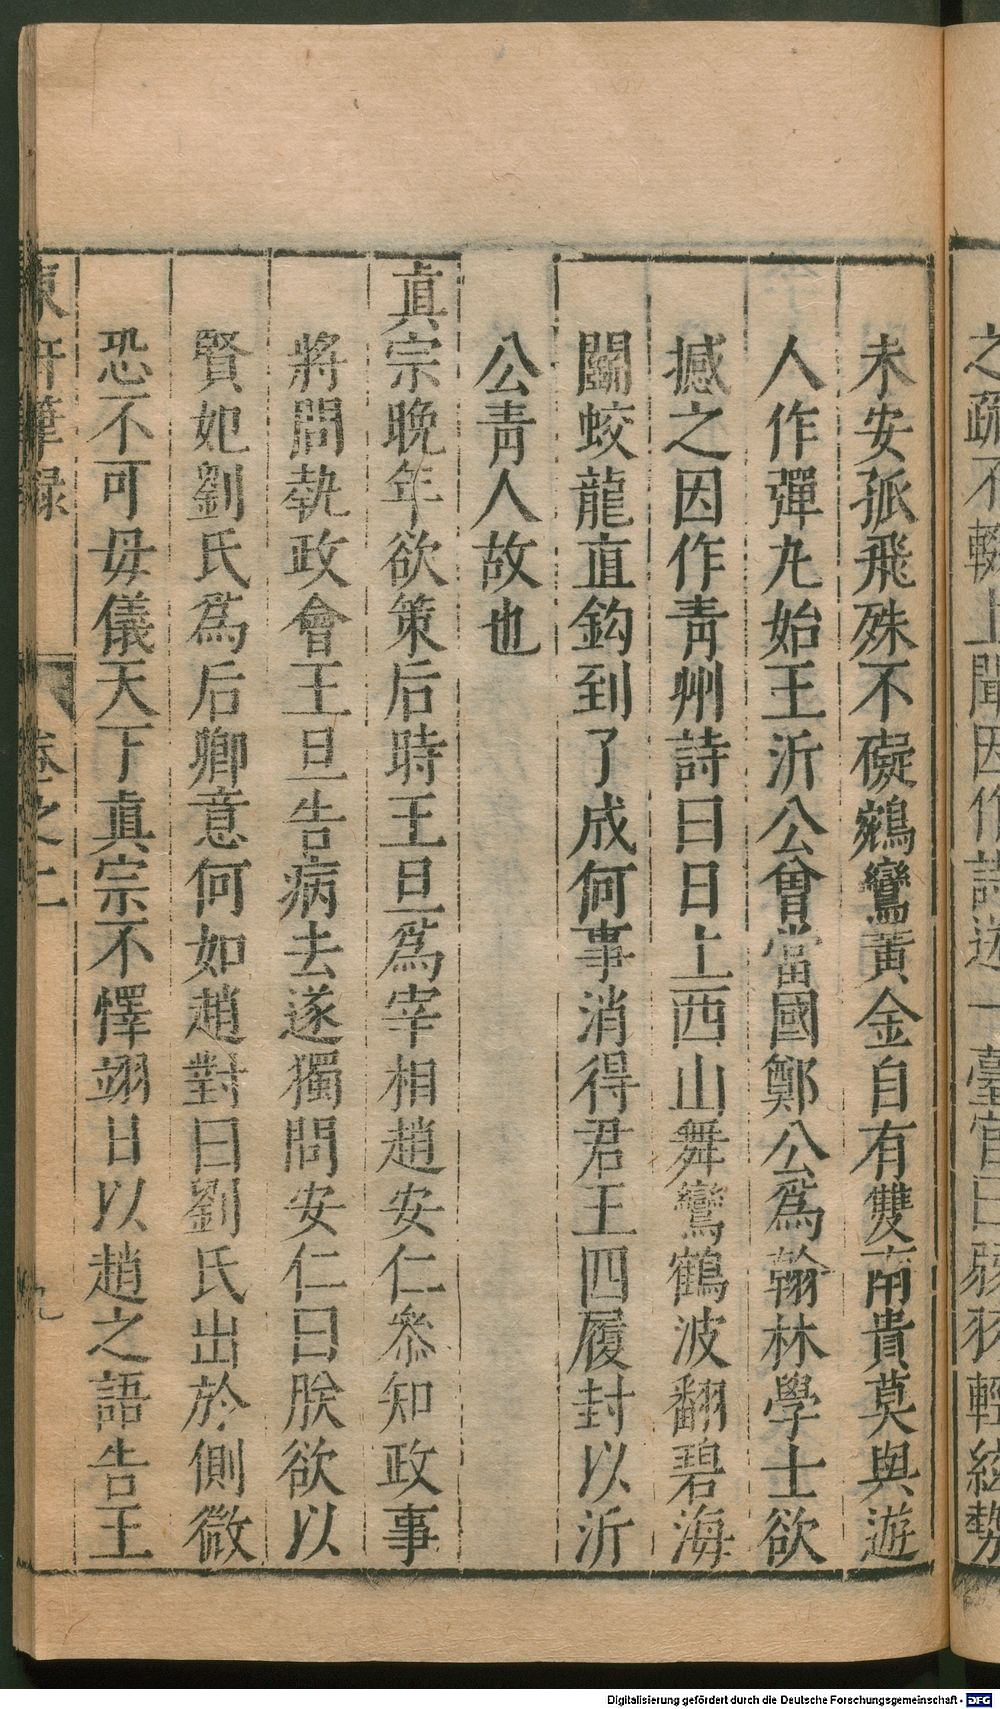 之疏不輟上聞因作詩送一臺官曰弱羽輕絲勢
未安孤飛殊不礙鵷鸞黃金自有雙南貴莫與遊
人作彈九始王沂公曾當國鄭公爲翰林學士欲
撼之因作靑州詩曰日上西山舞鸞鶴波翻碧海
鬭蛟龍直鈎到了成何事消得君王四履封以沂
公靑人故也
眞宗晚年欲策后時王旦爲宰相趙安仁叅知政事
將問執政會王旦告病去遂獨問安仁曰朕欲以
賢妃劉氏爲后卿意何如趙對曰劉氏出於側微
恐不可母儀天下眞宗不懌翊日以趙之語告王
東軒筆録
卷之二
九
Digitalisierung gefördert durch die Deutsche Forschungsgemeinschaft - DFG